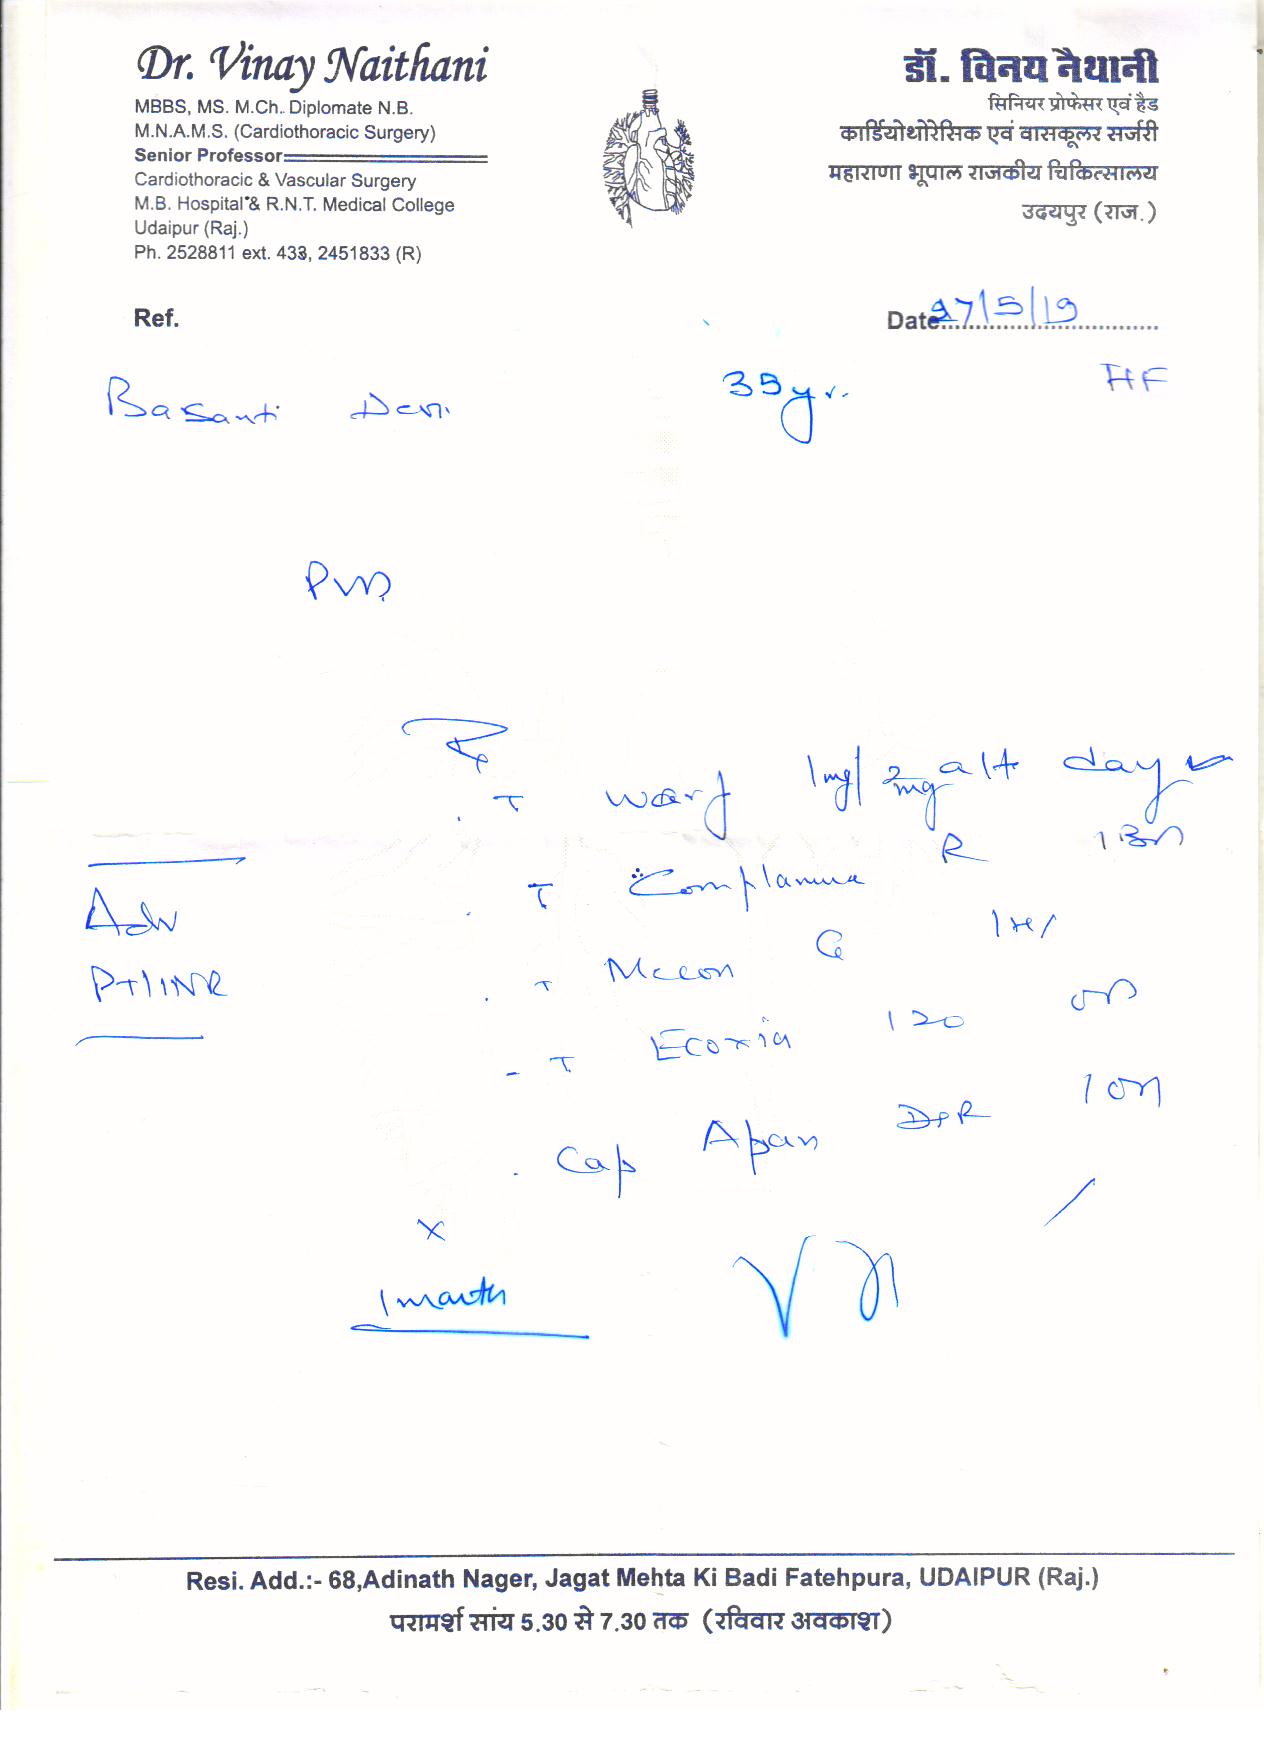 Dr. Vinay Naithani
MBBS, MS. M.Ch. Diplomate N.B.
M.N.A.M.S. (Cardiothoracic Surgery)
Senior Professor
Cardiothoracic & Vascular Surgery
M.B. Hospital & R.N.T. Medical College
Udaipur (Raj.)
Ph. 2528811 ext. 433, 2451833 (R)
डॉ. विनय नैथानी
सिनियर प्रोफेसर एवं हैड
कार्डियोथोरेसिक एवं वासकूलर सर्जरी
महाराणा भूपाल राजकीय चिकित्सालय
उदयपुर (राज.)
Ref.
Date 27/5/19
Basanti Devi 35 yr.
Rx
T warf 1mg/2mg alt day
T R
T Mccon
T Ecoxia 120 OD
Cap Apan DSR 1 OD
Adv
PT/INR
x
1 month
Resi. Add.:- 68,Adinath Nager, Jagat Mehta Ki Badi Fatehpura, UDAIPUR (Raj.)
परामर्श सांय 5.30 से 7.30 तक (रविवार अवकाश)